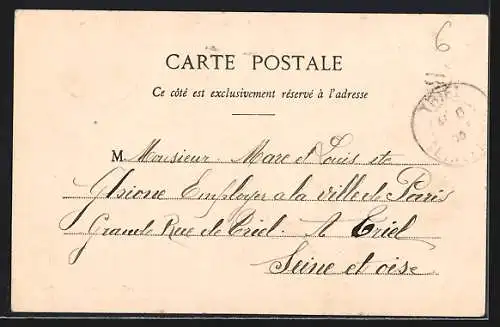 6
CARTE POSTALE
Ce côté est exclusivement réservé à l'adresse
M. Monsieur. Marc et Louis
Employer a la ville de Paris
Grande Rue de Triel. A Triel
Seine et oise